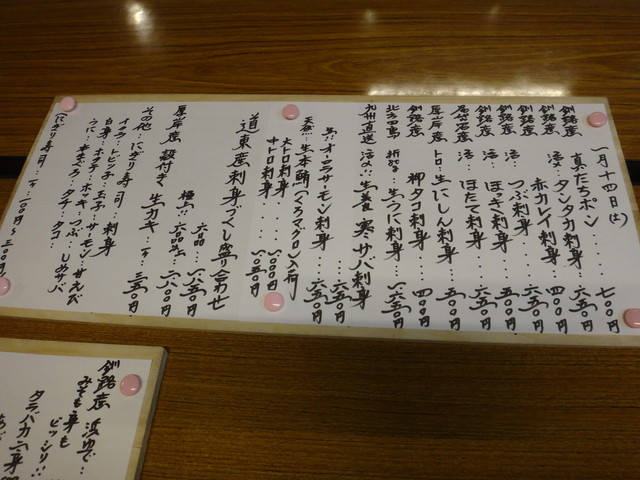 一月十四日(土)
釧路産 真だちポン・・・・ 七〇〇円
釧路産 活・・タンタカ刺身・・・ 六五〇円
釧路産 赤カレイ刺身・・・ 四〇〇円
釧路産 活・・つぶ刺身・・・ 五〇〇円
釧路産 活・・ほっき刺身・・・ 六五〇円
活・・ほたて刺身・・・ 六五〇円
厚岸産 トロ生にしん刺身・・・ 五〇〇円
押タコ刺身・・・ 四〇〇円
北方四島 折詰・・生うに刺身・・・ 一、六五〇円
九州直送 活〆!!生姜 寒サバ刺身 六五〇円
生!!オーロラサーモン刺身・・・ 六五〇円
天然・・生本鮪(くろマグロ)入荷
大トロ刺身・・・・ 一、〇〇〇円
中トロ刺身・・・・ 一、〇五〇円
道東産刺身つくし盛り合わせ
六品・・・
極上!! 六品盛
厚岸産 殻付き 生カキ・・・ 三五〇円
その他・・にぎり寿司・・・刺身
イクラ・・トビッ子・・エンガワ・・サーモン・・甘えび
白身・・ホタテ・・ホッキ・・つぶ・・しめサバ
タチ・・タコ・・・
(にぎり寿司・・・一ケ・・一〇〇円〜三〇〇円)
釧路産 浜ゆで・・・
みそも身も
ビッシリ!!
タラバカニ身